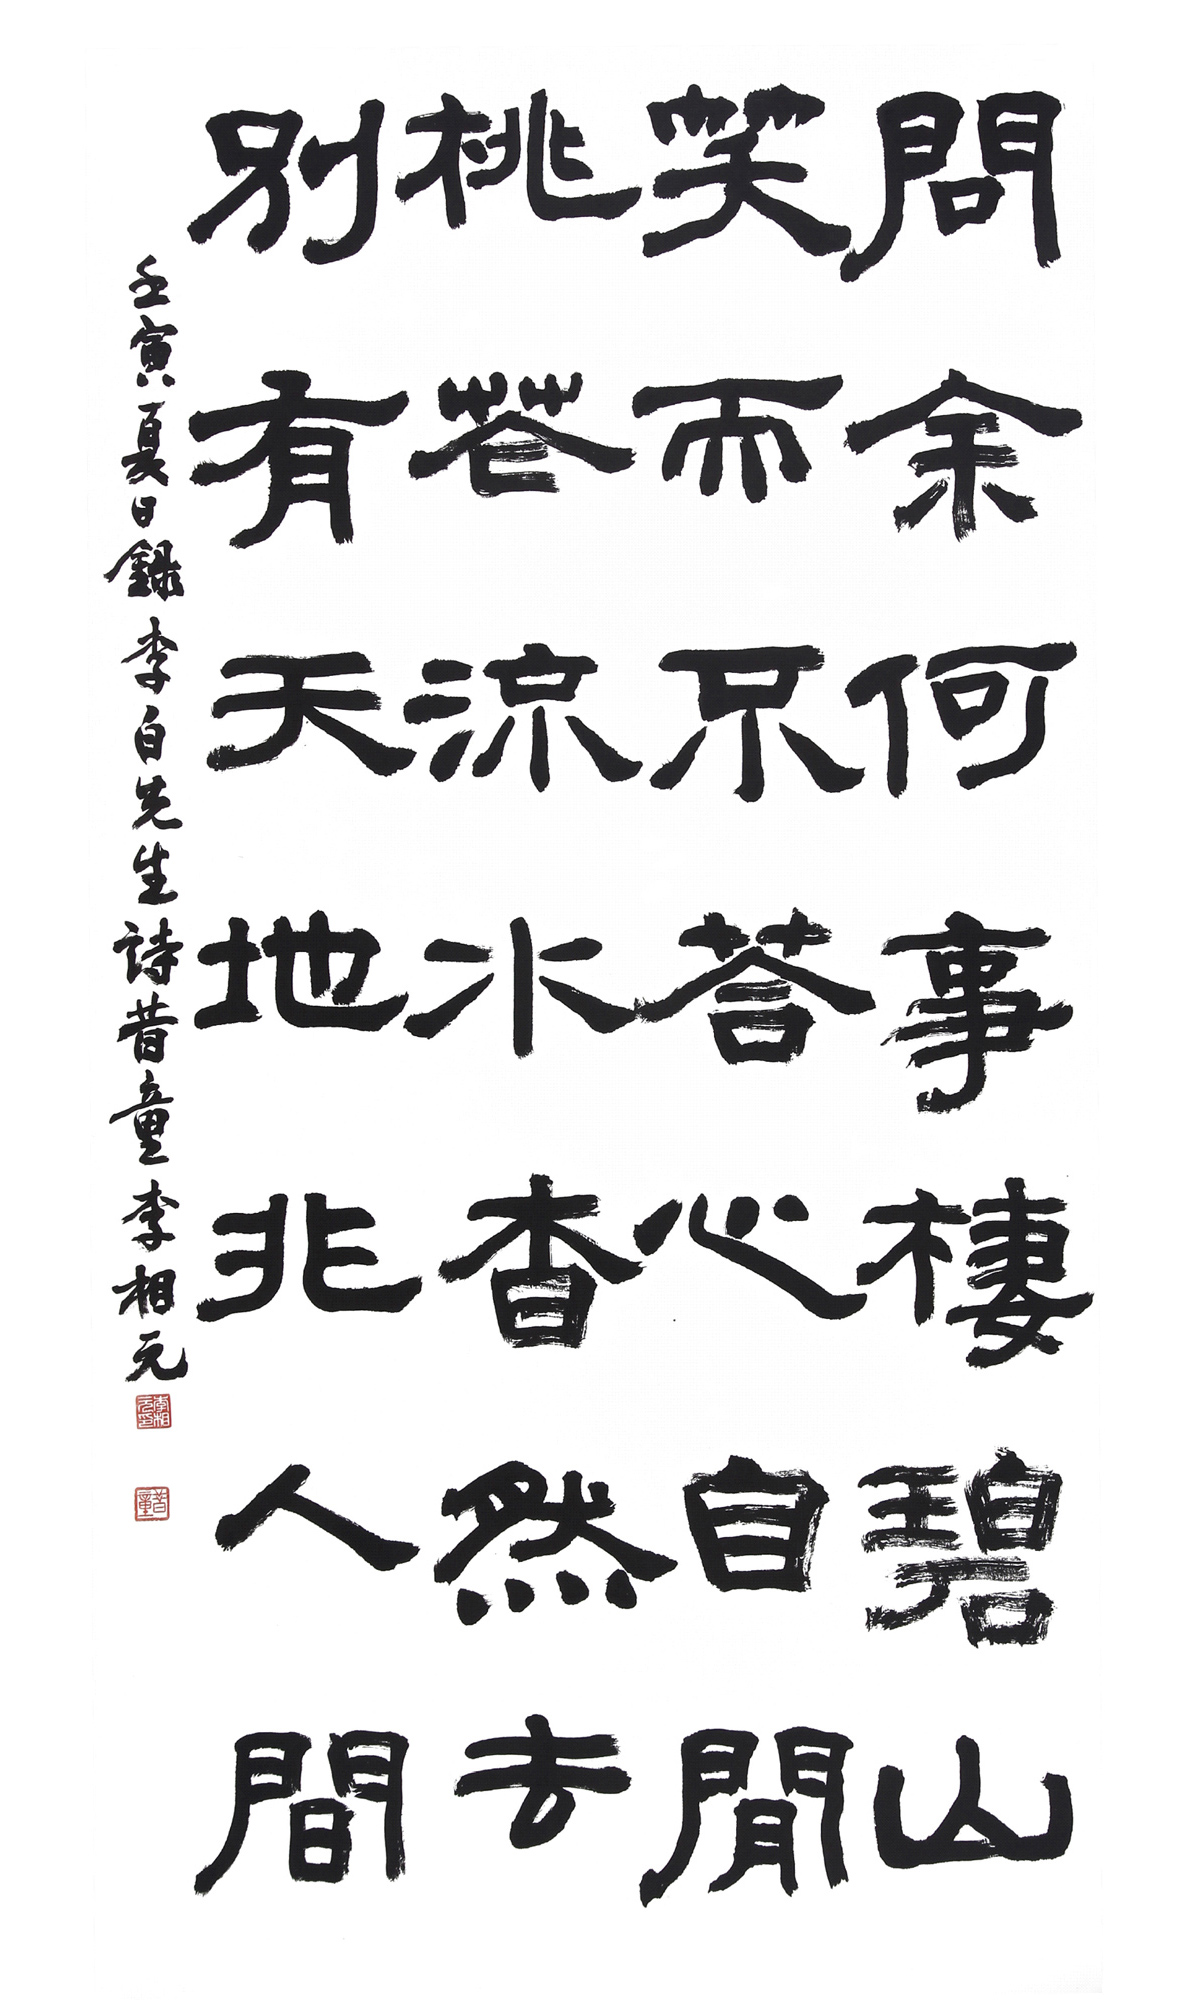 問余何事棲碧山
笑而不荅心自閒
桃花流水杳然去
別有天地非人間
壬寅夏日録李白先生詩昔童李相元
李相元印
昔童